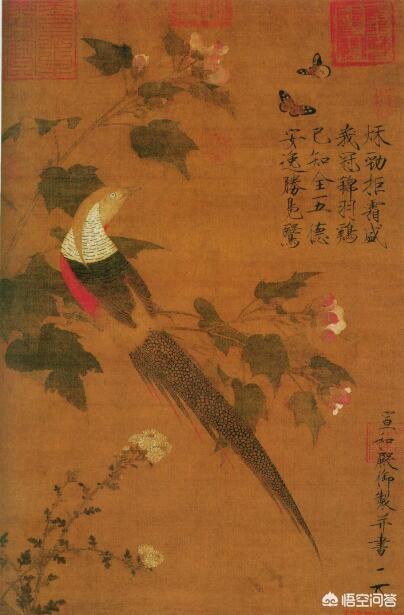 秋勁拒霜盛
峩冠錦羽鷄
已知全五德
安逸勝鳧鷖
宣和殿御製并書
悟空问答